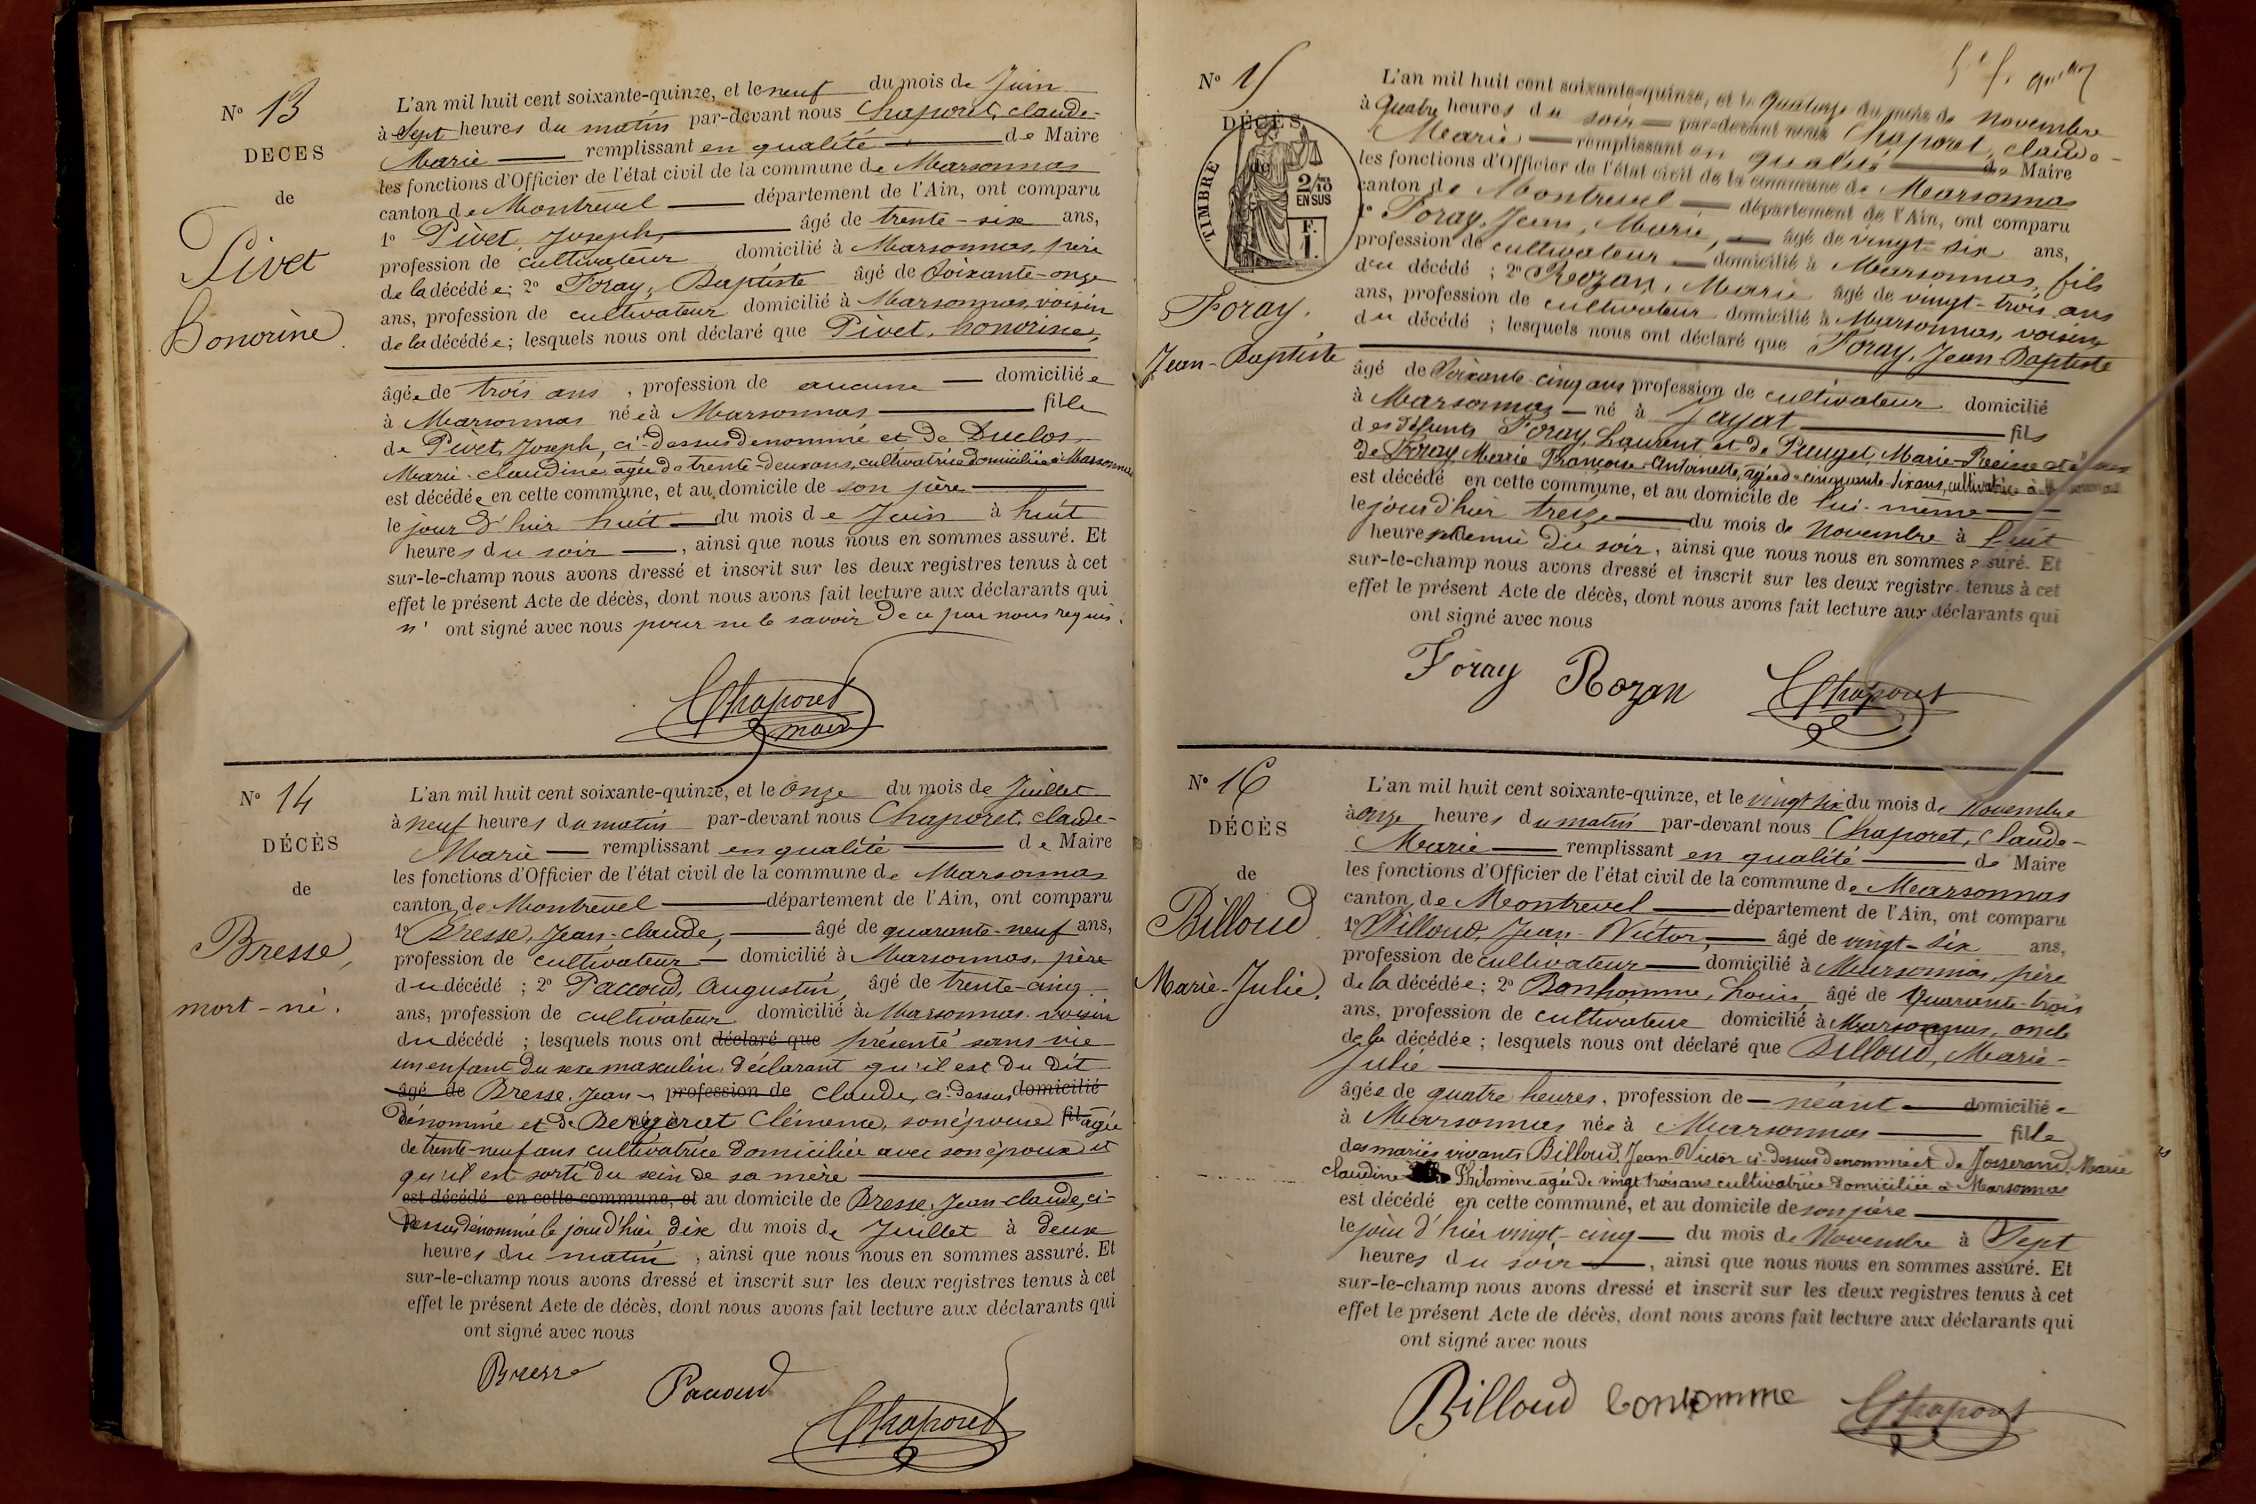 N° 13
DÉCÈS
de
Pivet
honorine
L'an mil huit cent soixante-quinze, et le neuf du mois de Juin
à Sept heures du matin par-devant nous Chaporet, claude-
Marie remplissant en qualité de Maire
les fonctions d'Officier de l'état civil de la commune de Marsonnas
canton de Montrevel département de l'Ain, ont comparu
1° Pivet, Joseph, âgé de trente-six ans,
profession de cultivateur domicilié à Marsonnas, père
de la décédée; 2° Foray, Baptiste âgé de Soixante-onze
ans, profession de cultivateur domicilié à Marsonnas, voisin
de la décédée; lesquels nous ont déclaré que Pivet, honorine,
âgée de trois ans, profession de aucune domiciliée
à Marsonnas née à Marsonnas fille
de Pivet, Joseph, ci-dessus denommé et de Duclos,
Marie-claudine âgée de trente-deux ans, cultivatrice domiciliée à Marsonnas
est décédée en cette commune, et au domicile de son père
le jour d'hier huit du mois de Juin à huit
heures du soir, ainsi que nous nous en sommes assuré. Et
sur-le-champ nous avons dressé et inscrit sur les deux registres tenus à cet
effet le présent Acte de décès, dont nous avons fait lecture aux déclarants qui
n' ont signé avec nous pour ne le savoir de ce par nous requis.
Chaporet
maire
N° 14
DÉCÈS
de
Bresse,
mort-né.
L'an mil huit cent soixante-quinze, et le onze du mois de Juillet
à neuf heures du matin par-devant nous Chaporet, claude-
Marie remplissant en qualité de Maire
les fonctions d'Officier de l'état civil de la commune de Marsonnas
canton de Montrevel département de l'Ain, ont comparu
1° Bresse, Jean-claude, âgé de quarante-neuf ans,
profession de cultivateur domicilié à Marsonnas, père
du décédé; 2° Paccoud, Augustin, âgé de trente-cinq
ans, profession de cultivateur domicilié à Marsonnas, voisin
du décédé; lesquels nous ont déclaré que présenté sans vie
un enfant du sexe masculin, déclarant qu'il est du dit
âgé de Bresse, Jean- profession de claude, ci-dessus domicilié
dénommé et de Clémence, son épouse fil âgée
de trente-neuf ans cultivatrice domiciliée avec son époux et
qu'il est sorti du sein de sa mère
est décédé en cette commune, et au domicile de Bresse, Jean claude, ci-
dessus dénommé le jour d'hier, dix du mois de Juillet à deux
heures du matin, ainsi que nous nous en sommes assuré. Et
sur-le-champ nous avons dressé et inscrit sur les deux registres tenus à cet
effet le présent Acte de décès, dont nous avons fait lecture aux déclarants qui
ont signé avec nous
Bresse Paccoud
Chaporet
N° 15
DÉCÈS
TIMBRE
2/10
EN SUS
F.
1.
Foray,
Jean-Baptiste
L'an mil huit cent soixante-quinze, et le quatorze du mois de novembre
à quatre heures du soir par-devant nous Chaporet, claude-
Marie remplissant en qualité de Maire
les fonctions d'Officier de l'état civil de la commune de Marsonnas
canton de Montrevel département de l'Ain, ont comparu
1° Foray, Jean, Marie, âgé de vingt-six ans,
profession de cultivateur domicilié à Marsonnas, fils
du décédé; 2° Rozan, Marie âgé de vingt-trois ans
ans, profession de cultivateur domicilié à Marsonnas, voisin
du décédé; lesquels nous ont déclaré que Foray, Jean-Baptiste
âgé de Soixante-cinq ans profession de cultivateur domicilié
à Marsonnas né à Jayat fils
des défunts Foray, Laurent et de Puuget, Marie-Reine et époux
de Foray Marie Françoise-Antoinette, âgée de cinquante-six ans, cultivatrice à Marsonnas
est décédé en cette commune, et au domicile de lui-même
le jour d'hier treize du mois de Novembre à huit
heures et demie du soir, ainsi que nous nous en sommes assuré. Et
sur-le-champ nous avons dressé et inscrit sur les deux registres tenus à cet
effet le présent Acte de décès, dont nous avons fait lecture aux déclarants qui
ont signé avec nous
Foray Rozan Chaporet
N° 16
DÉCÈS
de
Billoud
Marie-Julie.
L'an mil huit cent soixante-quinze, et le vingt six du mois de Novembre
à onze heures du matin par-devant nous Chaporet, Claude-
Marie remplissant en qualité de Maire
les fonctions d'Officier de l'état civil de la commune de Marsonnas
canton de Montrevel département de l'Ain, ont comparu
1° Billoud, Jean-Victor, âgé de vingt-six ans,
profession de cultivateur domicilié à Marsonnas, père
de la décédée; 2° Bonhomme, Louis, âgé de Quarante-trois
ans, profession de cultivateur domicilié à Marsonnas, oncle
de la décédée; lesquels nous ont déclaré que Billoud, Marie-
Julie
âgée de quatre heures, profession de néant domiciliée
à Marsonnas née à Marsonnas fille
des mariés vivants Billoud, Jean-Victor ci-dessus denommé et de Josserand, Marie
claudine Philomène âgée de vingt trois ans cultivatrice domiciliée à Marsonnas
est décédé en cette commune, et au domicile de son père
le jour d'hier vingt-cinq du mois de Novembre à Sept
heures du soir, ainsi que nous nous en sommes assuré. Et
sur-le-champ nous avons dressé et inscrit sur les deux registres tenus à cet
effet le présent Acte de décès, dont nous avons fait lecture aux déclarants qui
ont signé avec nous
Billoud bonhomme Chaporet